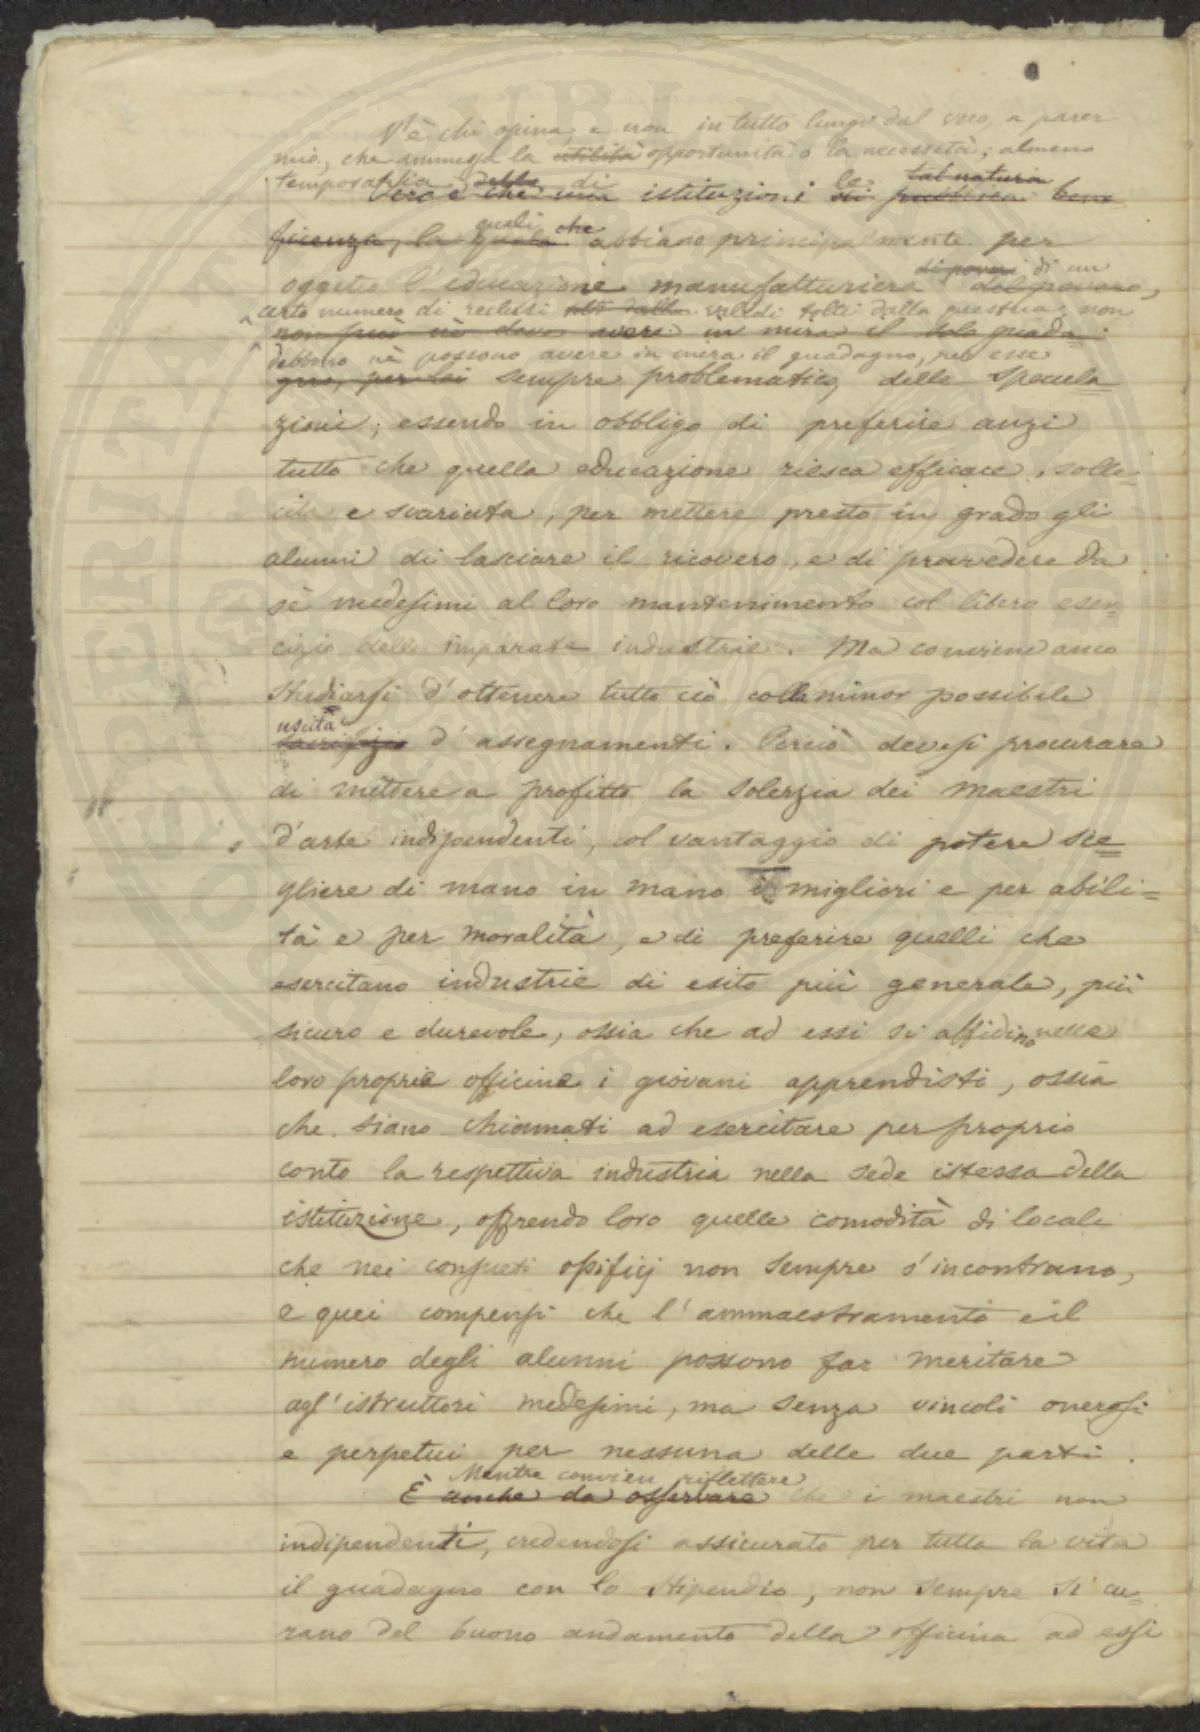 V'è chi opina, e non in tutto lungi dal vero, a parer
mio, che ammessa la utilità opportunità o la necessità, almeno
temporaria della di le tal natura
Vero è che una istituzioni di pubblica bene
ficenza, la quale quali che abbiano principalmente per
di poveri di un
oggetto l'educazione manufatturiera del povero,
certo numero di reclusi tolti dalla validi tolti dalla questua, non
non può nè deve avere in mira il solo guada
debbono nè possono avere in mira il guadagno, per esse
gno, per lei sempre problematico, delle specula
zioni; essendo in obbligo di preferire anzi
tutto che quella educazione riesca efficace, solle=
cita e svariata, per mettere presto in grado gli
alunni di lasciare il ricovero, e di provvedere da
sè medesimi al loro mantenimento col libero eser=
cizio delle imparate industrie. Ma conviene anco
studiarsi d'ottenere tutto ciò colla minor possibile
uscita
sacrifizio d'assegnamenti. Perciò devesi procurare
di mettere a profitto la solerzia dei maestri
d'arte indipendenti, col vantaggio di potere sce=
gliere di mano in mano i migliori e per abili=
tà e per moralità, e di preferire quelli che
esercitano industrie di esito più generale, più
sicuro e durevole, ossia che ad essi si affidino nelle
loro proprie officine i giovani apprendisti, ossia
che siano chiamati ad esercitare per proprio
conto la respettiva industria nella sede istessa della
istituzione, offrendo loro quelle comodità di locale
che nei consueti opificj non sempre s'incontrano,
e quei compensi che l'ammaestramento e il
numero degli alunni possono far meritare
agl'istruttori medesimi, ma senza vincoli onerosi
e perpetui per nessuna delle due parti.
Mentre convien riflettere
È anche da osservare che i maestri non
indipendenti, credendosi assicurato per tutta la vita
il guadagno con lo stipendio, non sempre si cu=
rano del buono andamento della officina ad essi